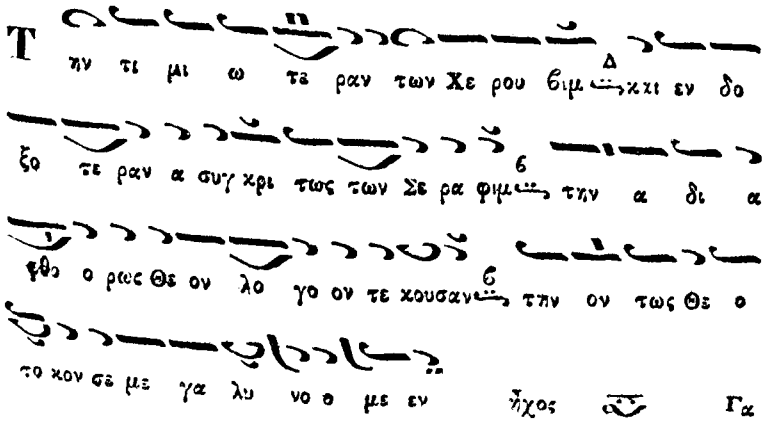 Τ ην τι μι ω τε ραν των Χε ρου βιμ Δ κκι εν δο
ξο τε ραν α συγ κρι τως των Σε ρα φιμ β την α δι α
φθο ο ρως Θε ον λο γο ον τε κουσαν β την ον τως Θε ο
το κον σε με γα λυ νο ο με εν ἦχος Γα